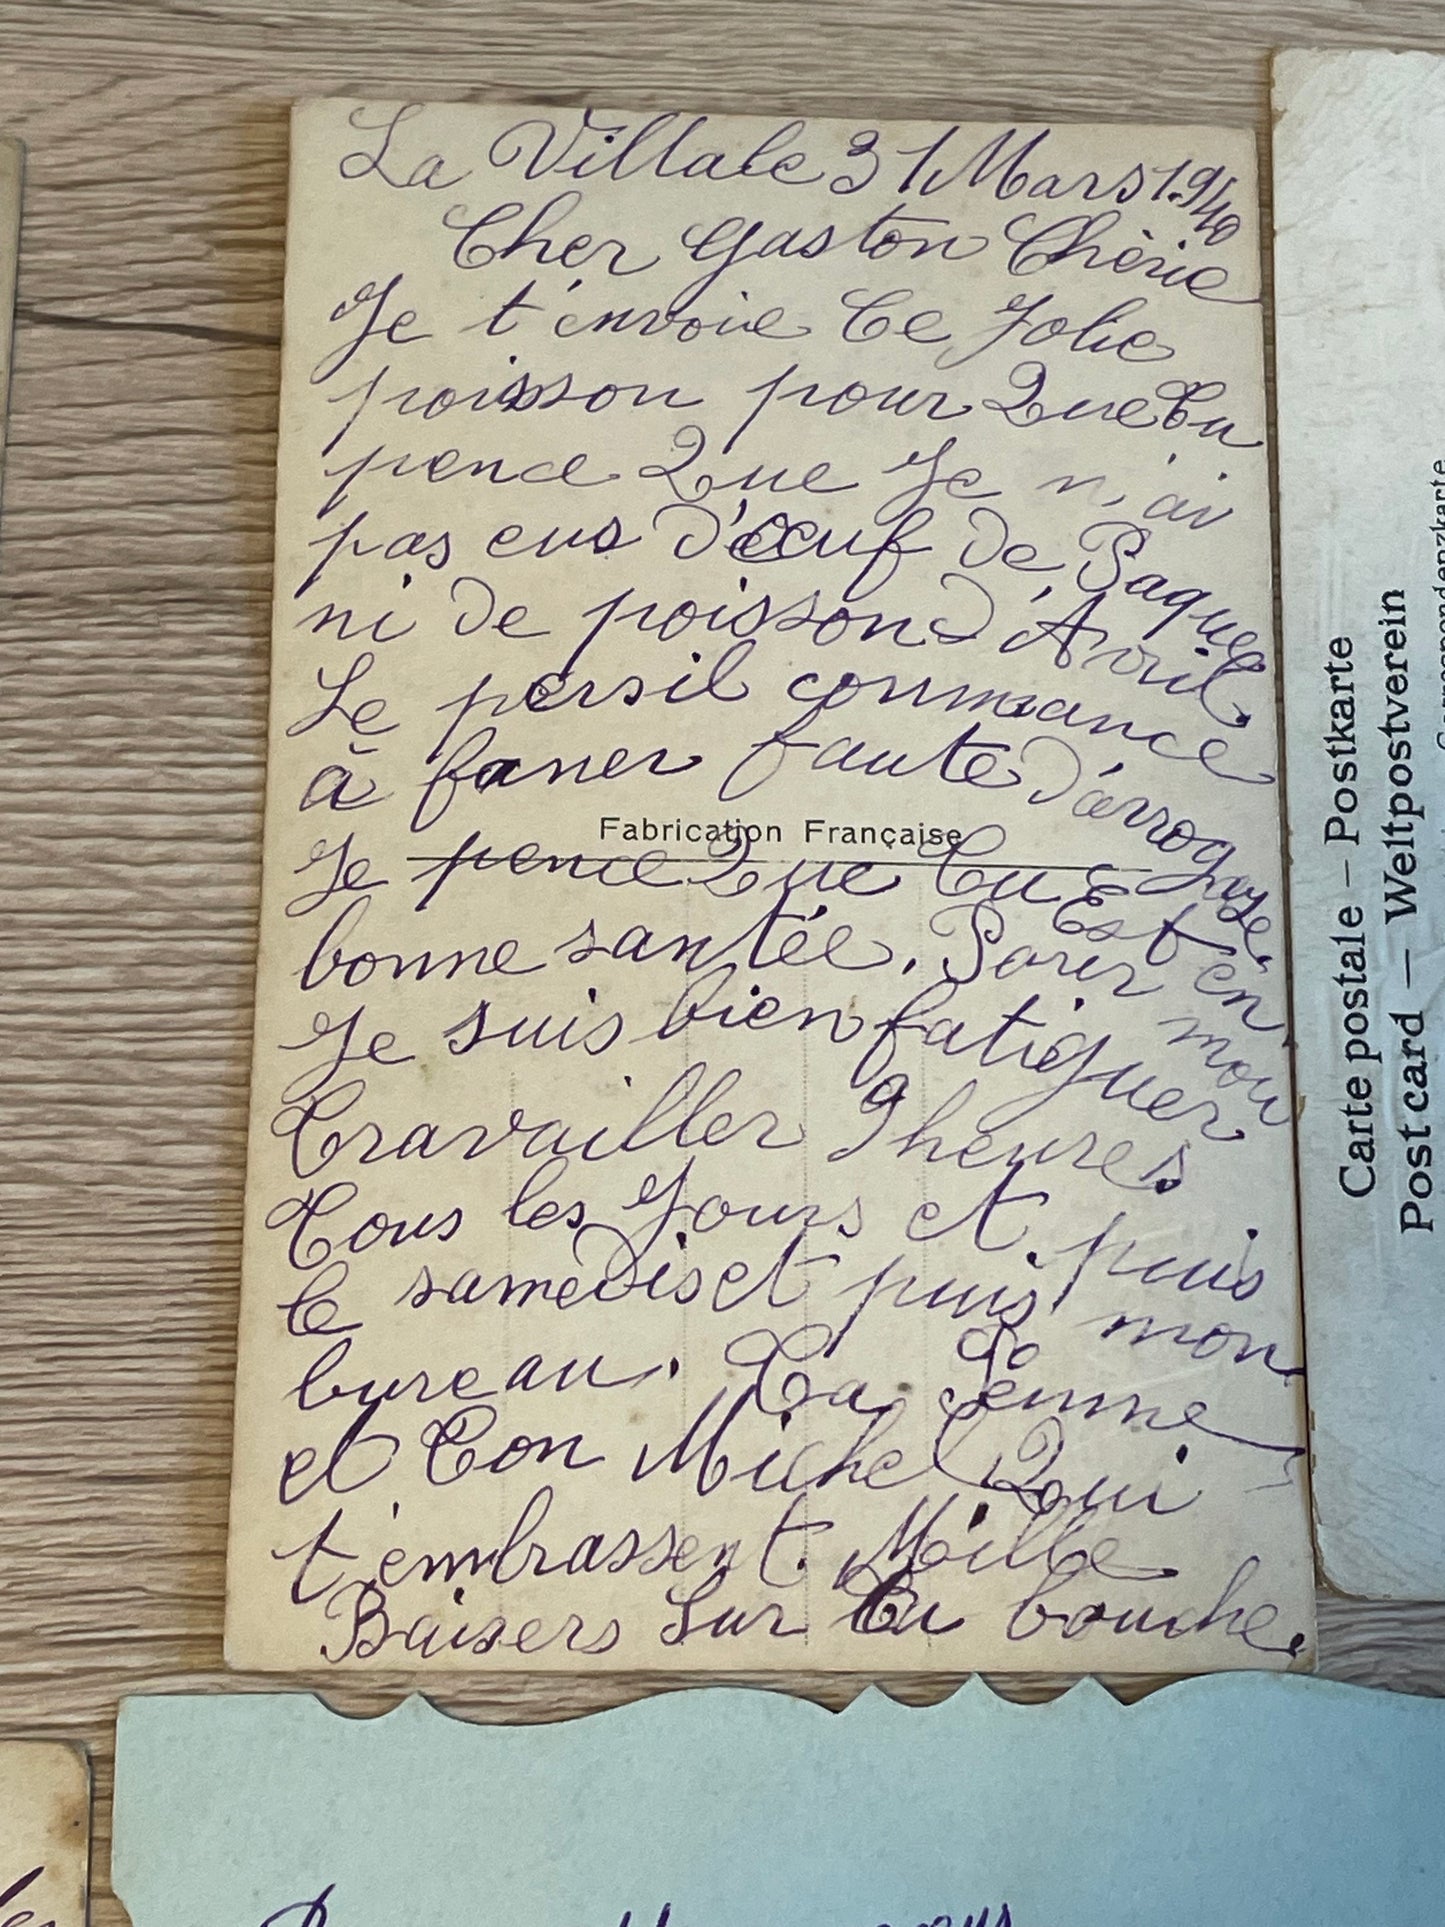 La Villate 31 Mars 1.9/40
Cher Gaston Chèrie
Je t'envoie Ce Jolie
poisson pour Que tu
pence Que Je n'ai
pas eus d'œuf de Paques
ni de poisson d'Avril.
Le persil commance
à faner faute d'arrogage.
Fabrication Française
Je pence Que Tu Est en
bonne santée. Pour moi
Je suis bien fatiguer
Travailler 9 heures
Tous les Jours et puis
le samedis et puis mon
bureau. Ta femme
et Ton Michel Qui
t'embrassent. Mille
Baisers Sur Ta bouche.
Carte postale – Postkarte
Post card — Weltpostverein
Correspondenzkarte